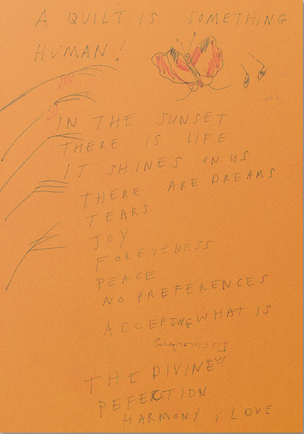 A QUILT IS SOMETHING
HUMAN!
IN THE SUNSET
THERE IS LIFE
IT SHINES ON US
THERE ARE DREAMS
TEARS
JOY
FOREVENESS
PEACE
NO PREFERENCES
ACCEPTING WHAT IS
THE DIVINE
PEFECTION
HARMONY, LOVE